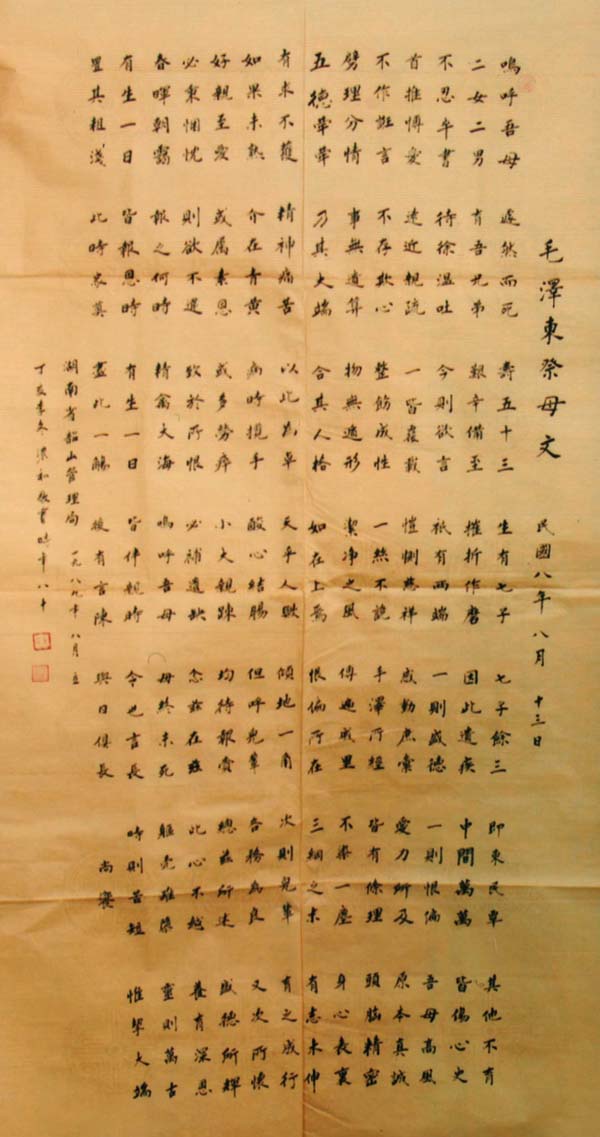 毛澤東祭母文 民國八年八月十三日
嗚呼吾母 遽然而死 壽五十三 生有七子 七子餘三 即東民覃 其他不有
二女二男 育吾兄弟 艱辛備至 摧折作磨 因此遘疾 中間萬萬 皆傷心史
不忍卒書 待徐溫吐 今則欲言 祇有兩端 一則盛德 一則恨偏 吾母高風
首推博愛 遠近親疏 一皆覆載 愷惻慈祥 感動庶彙 愛力所及 原本真誠
不作誑言 不存欺心 整飭成性 一絲不詭 手澤所經 皆有條理 頭腦精密
劈理分情 事無遺算 物無遁形 潔淨之風 傳遍戚里 不染一塵 身心表裏
五德犖犖 乃其大端 合其人格 如在上焉 恨偏所在 三綱之末 有志未伸
有求不獲 精神痛苦 以此為卓 天乎人歟 傾地一角 次則兒輩 育之成行
如果未熟 介在青黃 病時攬手 酸心結腸 但呼兒輩 各務為良 又次所懷
好親至愛 或屬素恩 或多勞瘁 小大親疎 均待報賚 總茲所述 盛德所輝
必秉悃忱 則效不違 致於所恨 必補遺缺 念茲在茲 此心不越 養育深恩
春暉朝靄 報之何時 精禽大海 嗚呼吾母 母終未死 軀殼雖隳 靈則萬古
有生一日 皆報恩時 有生一日 皆伴親時 今也言長 時則苦短 惟挈大端
置其粗淺 此時家奠 盡此一觴 後有言陳 與日俱長 尚饗
湖南省韶山管理局 一九八九年八月立
丁亥季冬 和敬書時年八十